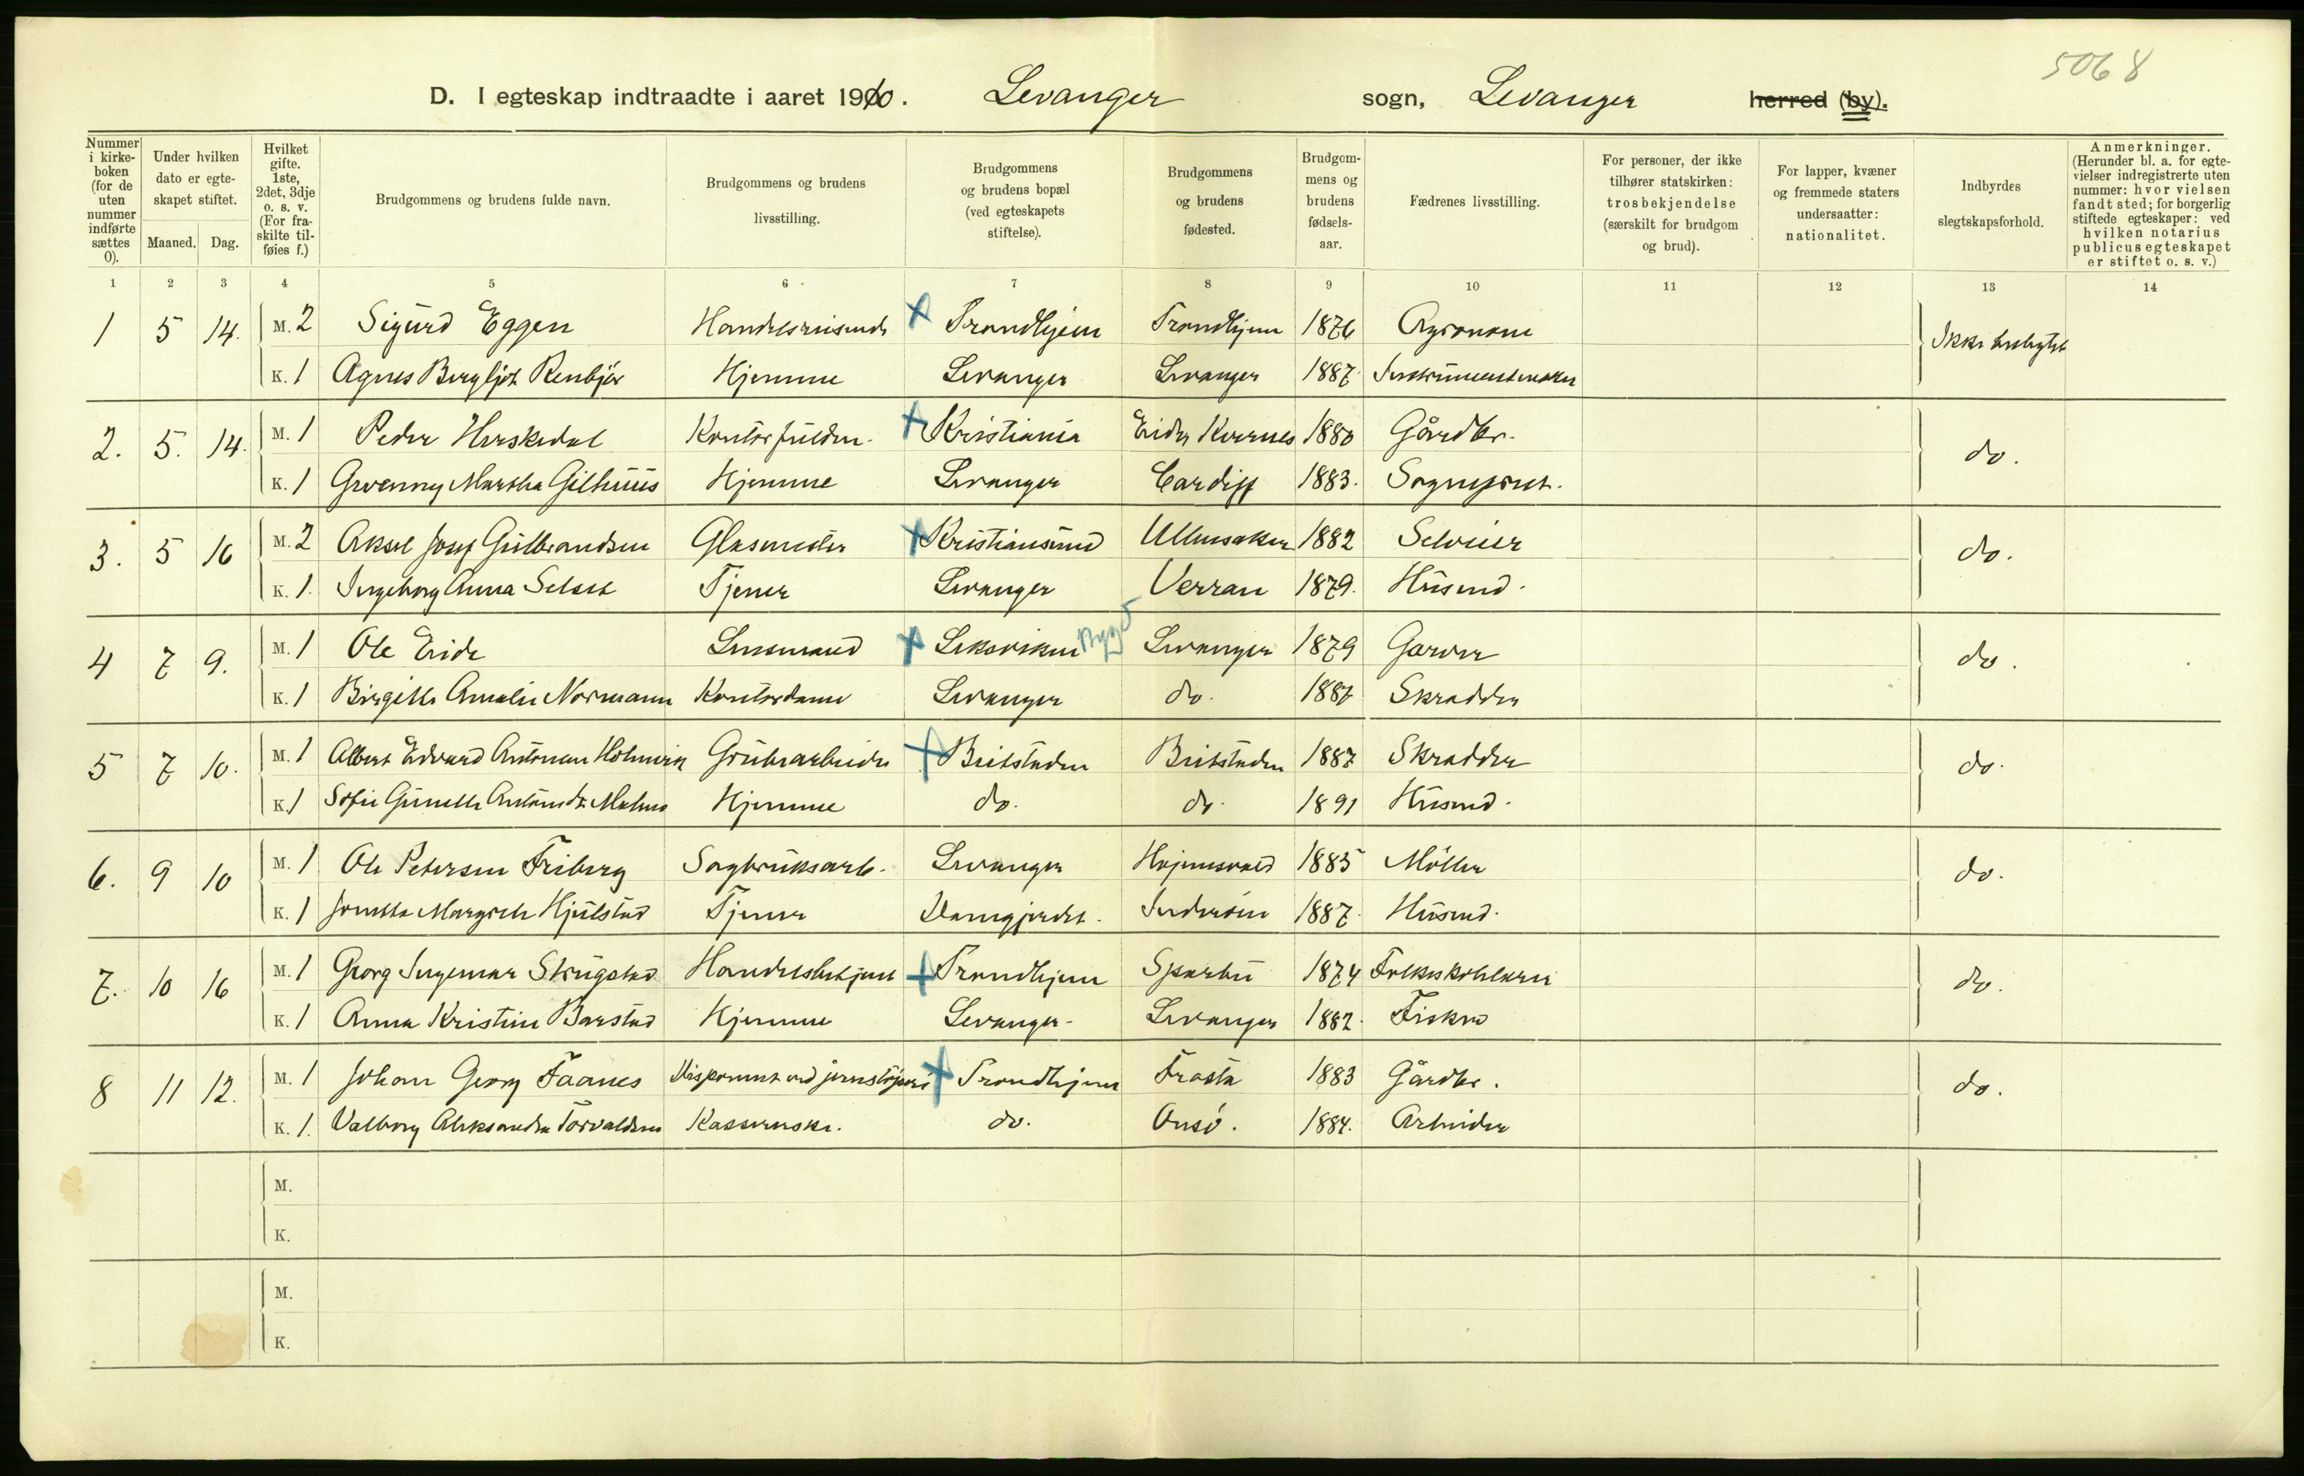 5068
D. I egteskap indtraadte i aaret 1910. Levanger sogn, Levanger herred (by).
Nummer i kirke-boken (for de uten nummer indførte sættes 0).
Under hvilken dato er egte-skapet stiftet.
Maaned. Dag.
Hvilket gifte. 1ste, 2det, 3dje o. s. v. (For fra-skilte til-føies f.)
Brudgommens og brudens fulde navn.
Brudgommens og brudens livsstilling.
Brudgommens og brudens bopæl (ved egteskapets stiftelse).
Brudgommens og brudens fødested.
Brudgom-mens og brudens fødsels-aar.
Fædrenes livsstilling.
For personer, der ikke tilhører statskirken: trosbekjendelse (særskilt for brudgom og brud).
For lapper, kvæner og fremmede staters undersaatter: nationalitet.
Indbyrdes slegtskapsforhold.
Anmerkninger. (Herunder bl. a. for egte-vielser indregistrerte uten nummer: hvor vielsen fandt sted; for borgerlig stiftede egteskaper: ved hvilken notarius publicus egteskapet er stiftet o. s. v.)
1 2 3 4 5 6 7 8 9 10 11 12 13 14
1 5 14. M. 2 Sigurd Eggen Handelsreisende Trondhjem Trondhjem 1876 Agronom Ikke beslegtet
K. 1 Agnes Bergljot Renbjör Hjemme Levanger Levanger 1887. Instrumentmaker
2. 5. 14. M. 1 Peder Herskedal Kontorfuldm. Kristiania Eide Kvernes 1880 Gårdbr. do.
K. 1 Gwenny Martha Gilhuus Hjemme Levanger Cardiff 1883. Sogneprest.
3. 5 16 M. 2 Aksel Josef Gulbrandsen Glasmester Kristiansund Ullensaker 1882 Selveier do.
K. 1. Ingeborg Anna Selset Tjener Levanger Verran 1879. Husmd.
4 7 9. M. 1 Ole Eide Lensmand Leksviken Bygd Levanger 1879 Garver do.
K. 1 Birgitte Amalie Normann Kontordame Levanger do. 1887 Skrædder
5 7 10. M. 1 Albert Edvard Antonsen Holmvik Grubearbeider Beitstaden Beitstaden 1887 Skrædder do.
K. 1 Sofie Gunelle Antonsdtr Hjemme do. do. 1891 Husmd.
6. 9 10 M. 1 Ole Petersen Friberg Sagbruksarb. Levanger 1885 Möller do.
K. 1 Jonetta Margrete Hjulstad Tjener Damgjerdet. Inderöen 1887. Husmd.
7. 10 16 M. 1 Georg Ingemar Skrugstad Handelsbetjent Trondhjem Sparbu 1874 Folkeskolelærer do.
K. 1 Anna Kristine Barstad Hjemme Levanger. Levanger 1882. Fisker
8 11 12. M. 1 Johan Georg Faanes Disponent ved jernstöperi Trondhjem Frosta 1883 Gårdbr. do.
K. 1. Valborg Aleksandra Torvaldsen Kassererske. do. Onsö. 1884. Arbeider
M.
K.
M.
K.